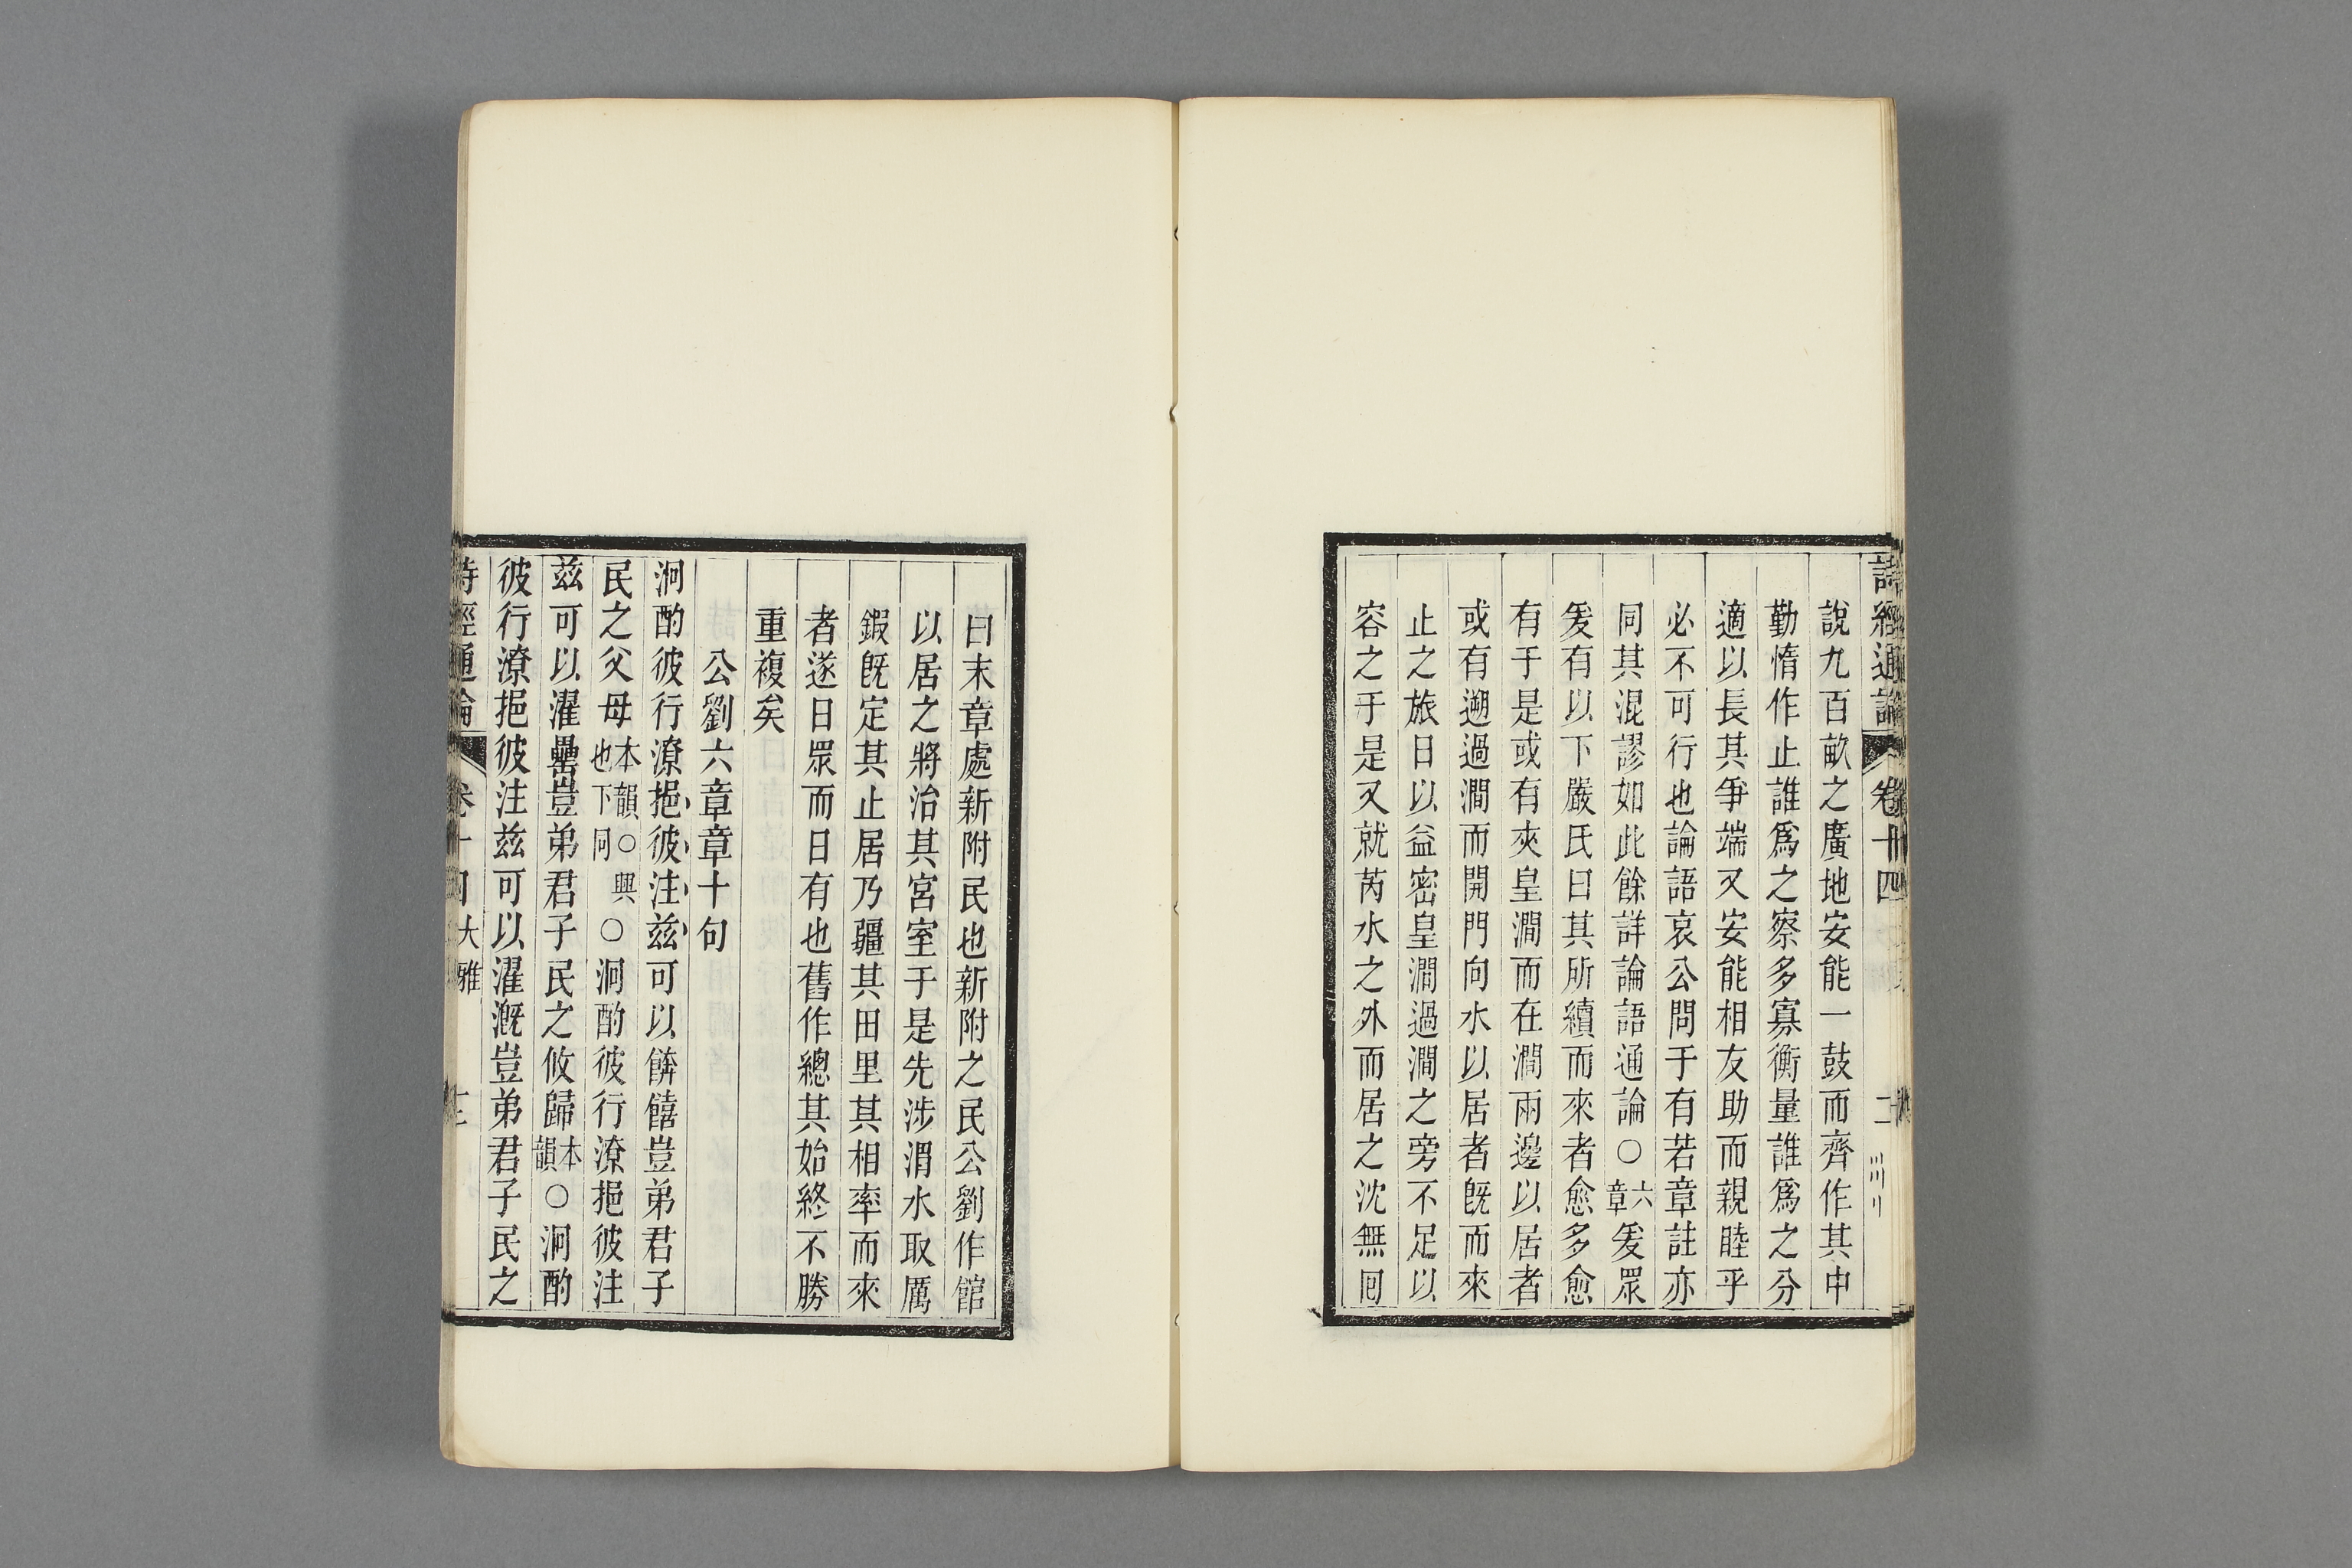 詩經通論 卷十四
說九百畝之廣地安能一鼓而齊作其中
勤惰作止誰爲之察多寡衡量誰爲之分
適以長其爭端又安能相友助而親睦乎
必不可行也論語哀公問于有若章註亦
同其混謬如此餘詳論語通論〇六章爰眾
爰有以下嚴氏曰其所續而來者愈多愈
有于是或有夾皇澗而在澗兩邊以居者
或有遡過澗而開門向水以居者既而來
止之旅日以益密皇澗過澗之旁不足以
容之于是又就芮水之外而居之沈無回
曰末章處新附民也新附之民公劉作館
以居之將治其宮室于是先涉渭水取厲
鍜既定其止居乃疆其田里其相率而來
者遂日眾而日有也舊作總其始終不勝
重複矣
公劉六章章十句
泂酌彼行潦挹彼注茲可以餴饎豈弟君子
民之父母本韻〇興也下同〇泂酌彼行潦挹彼注
茲可以濯罍豈弟君子民之攸歸本韻〇泂酌
彼行潦挹彼注茲可以濯溉豈弟君子民之
詩經通論 卷十四 大雅